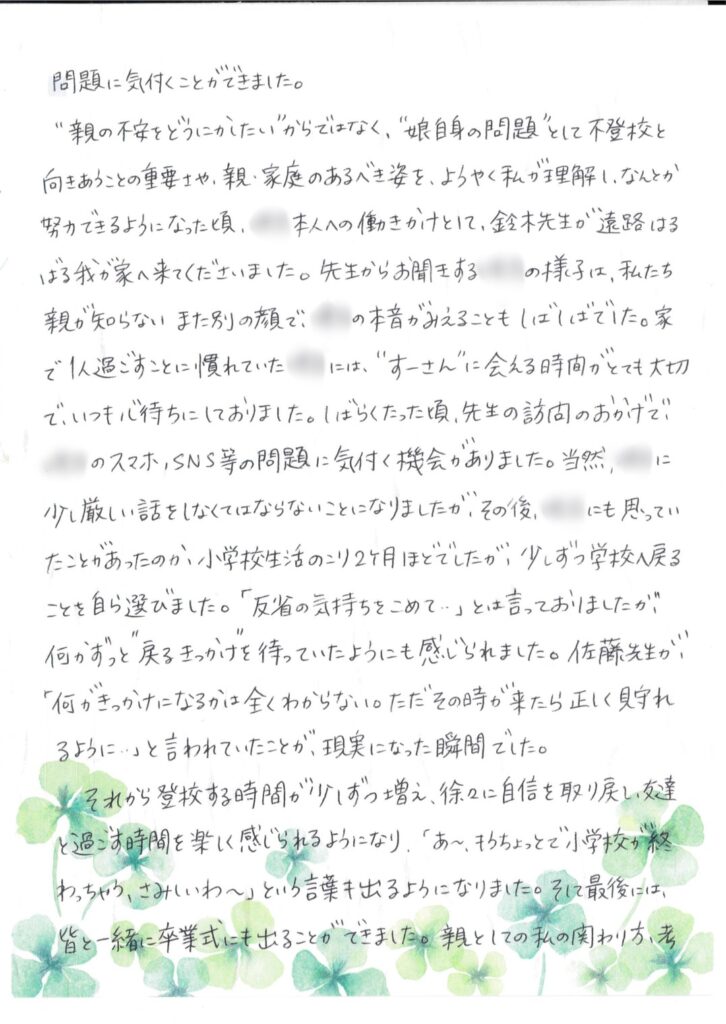 問題に気付くことができました。
"親の不安をどうにかしたい"からではなく、"娘自身の問題"として不登校と
向きあうことの重要さや、親・家庭のあるべき姿を、ようやく私が理解し、なんとか
努力できるようになった頃、本人への働きかけとして、鈴木先生が遠路はる
ばる我が家へ来てくださいました。先生からお聞きするの様子は、私たち
親が知らないまた別の顔で、の本音がみえることもしばしばでした。家
で1人過ごすことに慣れていたには、"すーさん"に会える時間がとても大切
で、いつも心待ちにしておりました。しばらくたった頃、先生の訪問のおかげで、
のスマホ、SNS等の問題に気付く機会がありました。当然、に
少し厳しい話をしなくてはならないことになりましたが、その後、にも思ってい
たことがあったのか、小学校生活のこり2ヶ月ほどでしたが、少しずつ学校へ戻る
ことを自ら選びました。「反省の気持ちをこめて‥」とは言っておりましたが、
何かずっと"戻るきっかけ"を待っていたようにも感じられました。佐藤先生が、
「何がきっかけになるかは全くわからない。ただその時が来たら正しく見守れ
るように‥」と言われていたことが、現実になった瞬間でした。
それから登校する時間が少しずつ増え、徐々に自信を取り戻し、友達
と過ごす時間を楽しく感じられるようになり、「あ〜、もうちょっとで小学校が終
わっちゃう、さみしいわ〜」という言葉も出るようになりました。そして最後には、
皆と一緒に卒業式にも出ることができました。親としての私の関わり方、考